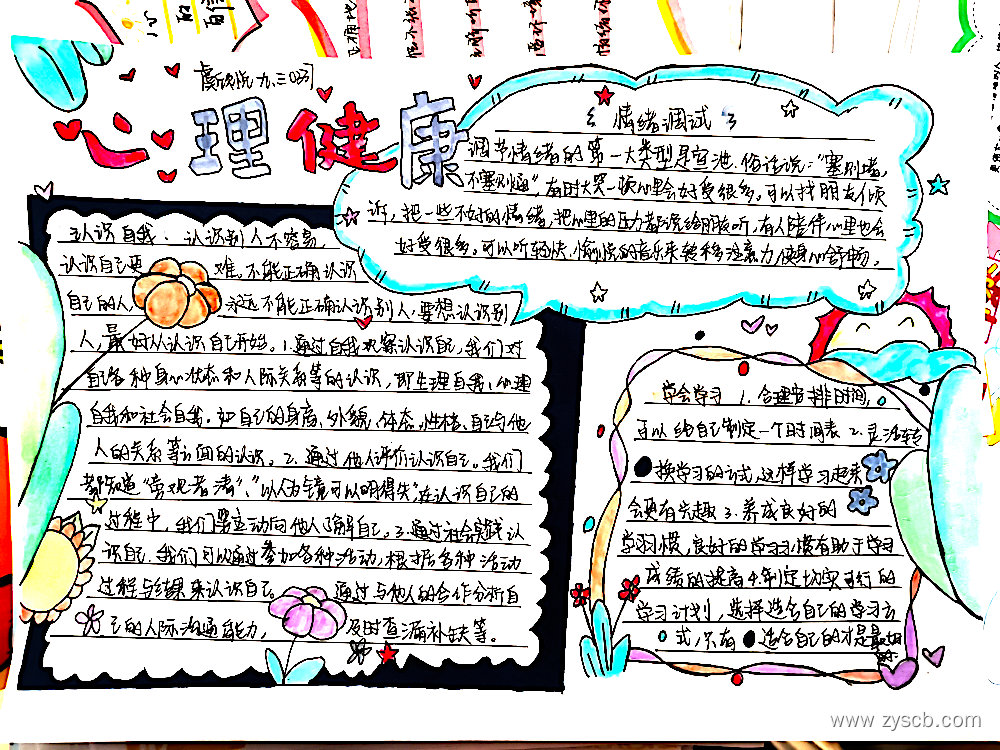 九.三
心理健康
情绪调试
调节情绪的第一大类型是宣泄.俗话说:"塞则堵,
不塞则通",有时大哭一顿心里会好受很多,可以找朋友倾
诉,把一些不好的情绪,把心里的压力都说给朋友听,有人陪伴心里也会
好受很多.可以听轻快、愉快的音乐来转移注意力,使身心舒畅。
认识自我.认识别人不容易,
认识自己更难.不能正确认识
自己的人,永远不能正确认识别人,要想认识别
人,最好从认识自己开始。1.通过自我观察认识自己,我们对
自己各种身心状态和人际关系等的认识,即生理自我、心理
自我和社会自我.如自己的身高、外貌、体态、性格、自己与他
人的关系等方面的认识。2.通过他人评价认识自己。我们
都知道"旁观者清"、"以人为镜可以明得失"在认识自己的
过程中,我们要主动向他人了解自己。3.通过社会实践认
识自己.我们可以通过参加各种活动,根据各种活动
过程与结果来认识自己。通过与他人的合作分析自
己的人际沟通能力,及时查漏补缺等。
学会学习 1.合理安排时间,
可以给自己制定一个时间表 2.灵活转
换学习的方式,这样学习起来
会更有兴趣 3.养成良好的
学习习惯,良好的学习习惯有助于学习
成绩的提高 4.制定切实可行的
学习计划,选择适合自己的学习方
式,只有适合自己的才是最好
的.
www.zyscb.com